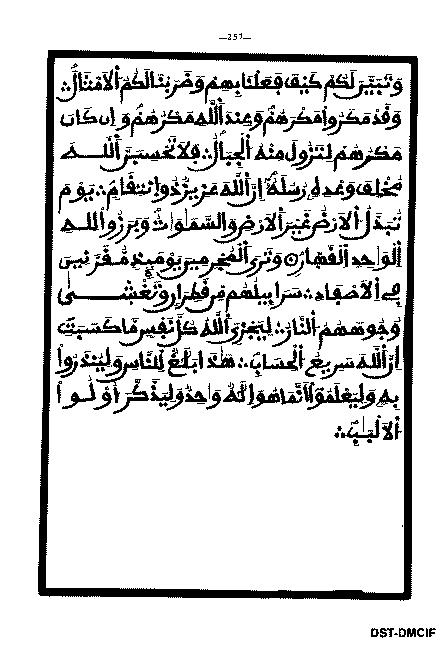 —257—
وَتَبَيَّنَ لَكُمْ كَيْفَ فَعَلْنَا بِهِمْ وَضَرَبْنَا لَكُمُ الْأَمْثَالَ ∴
وَقَدْ مَكَرُوا مَكْرَهُمْ وَعِندَ اللَّهِ مَكْرُهُمْ وَإِن كَانَ
مَكْرُهُمْ لِتَزُولَ مِنْهُ الْجِبَالُ ∴ فَلَا تَحْسِبَنَّ اللَّهَ
مُخْلِفَ وَعْدِهِ رُسُلَهُ إِنَّ اللَّهَ عَزِيزٌ ذُو انتِقَامٍ ∴ يَوْمَ
تُبَدَّلُ الْأَرْضُ غَيْرَ الْأَرْضِ وَالسَّمَاوَاتُ وَبَرَزُوا لِلَّهِ
الْوَاحِدِ الْقَهَّارِ ۝ وَتَرَى الْمُجْرِمِينَ يَوْمَئِذٍ مُّقَرَّنِينَ
فِي الْأَصْفَادِ ∴ سَرَابِيلُهُم مِّن قَطِرَانٍ وَتَغْشَى
وُجُوهَهُمُ النَّارُ ∴ لِيَجْزِيَ اللَّهُ كُلَّ نَفْسٍ مَّا كَسَبَتْ
إِنَّ اللَّهَ سَرِيعُ الْحِسَابِ ∴ هَٰذَا بَلَاغٌ لِّلنَّاسِ وَلِيُنذَرُوا
بِهِ وَلِيَعْلَمُوا أَنَّمَا هُوَ إِلَٰهٌ وَاحِدٌ وَلِيَذَّكَّرَ أُوْلُوا
الْأَلْبَابِ ∴
DST-DMCIF